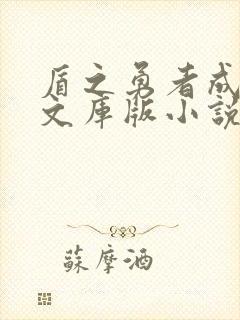 盾之勇者成
文库版小說
蘇摩酒